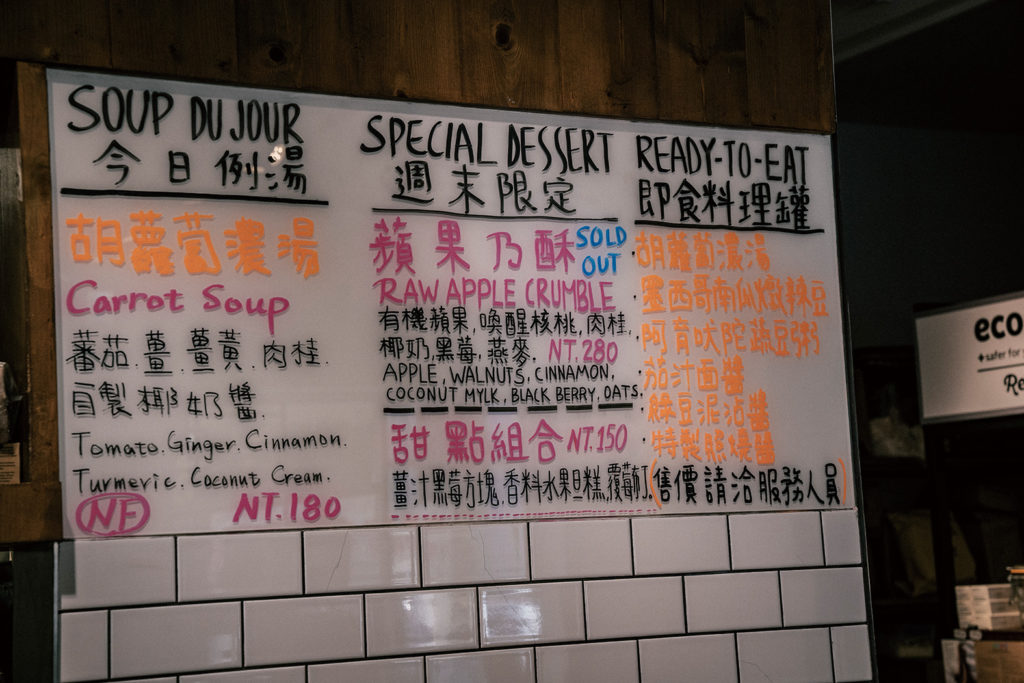 SOUP DU JOUR
今日例湯
胡蘿蔔濃湯
Carrot Soup
蕃茄.薑.薑黃.肉桂.
自製椰奶醬.
Tomato.Ginger.Cinnamon.
Turmeric.Coconut Cream.
NF NT.180
SPECIAL DESSERT
週末限定
蘋果乃酥 SOLD OUT
RAW APPLE CRUMBLE
有機蘋果,喚醒核桃,肉桂,
椰奶,黑莓,燕麥. NT.280
APPLE, WALNUTS, CINNAMON,
COCONUT MYLK, BLACK BERRY, OATS.
甜點組合 NT.150
薑汁黑莓方塊,香料水果旦糕,覆莓
READY-TO-EAT
即食料理罐
·胡蘿蔔濃湯
·墨西哥南瓜燉辣豆
·阿育吠陀蔬豆粥
·茄汁面醬
·綠豆泥沾醬
·特製照燒醬
(售價請洽服務人員)
eco
+safer for
Re